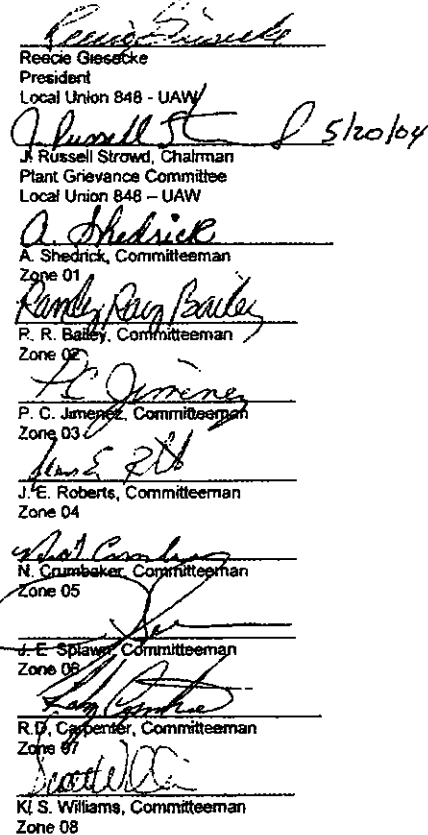 Reecie Giesecke
Reecie Giesecke
President
Local Union 848 - UAW
J. Russell St 5/20/04
J. Russell Strowd, Chairman
Plant Grievance Committee
Local Union 848 – UAW
A. Shedrick
A. Shedrick, Committeeman
Zone 01
Randy Ray Bailey
R. R. Bailey, Committeeman
Zone 02
P C Jimenez
P. C. Jimenez, Committeeman
Zone 03
J. E. Roberts, Committeeman
Zone 04
N. Crumbaker, Committeeman
Zone 05
J. E. Splawn, Committeeman
Zone 06
R.D. Carpenter, Committeeman
Zone 07
K. S. Williams, Committeeman
Zone 08